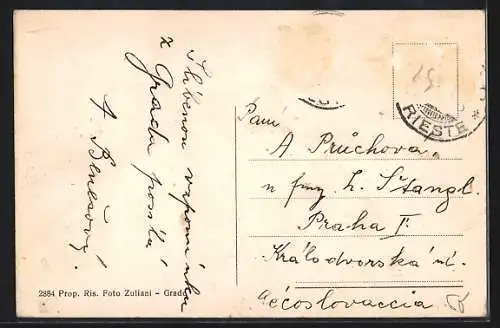 Slíbenou vzpomínku
z Grada posílá
A. Benešová.
2884 Prop. Ris. Foto Zuliani – Grado
RIESTE
Paní
A Průchova,
u fmy L. Stangl.
Praha I.
Královdvorská ul.
Cécoslovaccia